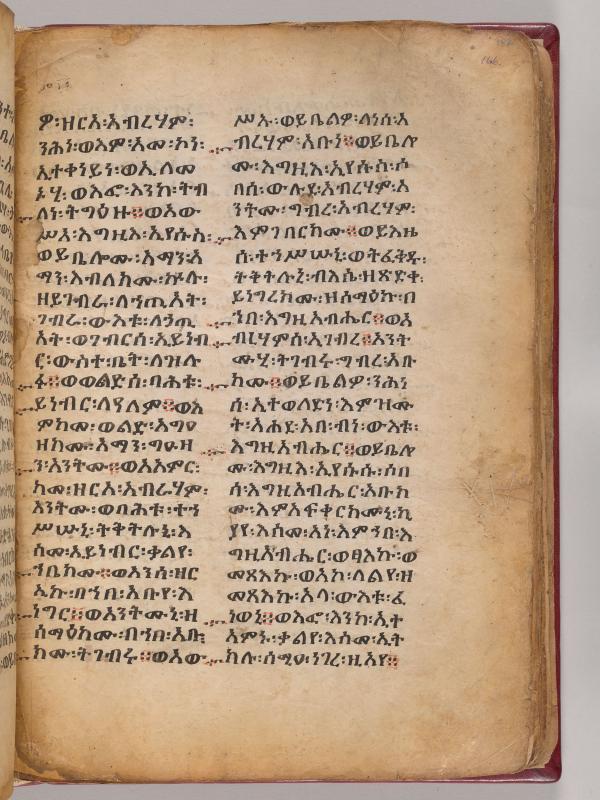 166
ዎ፡ዘርአ፡አብረሃም፡
ንሕነ፡ወአም፡አመ፡ኮነ፡
ኢተቀነይነ፡ወኢ ለመ
ኑሂ፡ወእፎ፡እንከ፡ትብ
ለነ፡ትግዕዙ።ወአው
ሥአ፡እግዚእ፡ኢየሱስ፡
ወይቤሎሙ፡አማን፡አ
ማን፡እብለክሙ፡ኵሉ፡
ዘይገብራ፡ለኀጢአት፡
ገብራ፡ውእቱ፡ለኃጢ
አት፡ወገብርሰ፡ኢይነብ
ር፡ውስተ፡ቤት፡ለዝሉ
ፉ።ወወልድሰ፡ባሕቱ፡
ይነብር፡ለዓለም።ወእ
ምከመ፡ወልድ፡አግዓ
ዘክሙ፡አማን፡ግዑዛ
ን፡አንትሙ።ወአአምር፡
ከመ፡ዘርአ፡አብራሃም፡
አንትሙ፡ወባሕቱ፡ተኀ
ሥሡኒ፡ትቅትሉኒ፡እ
ስመ፡ኢይነብር፡ቃልየ፡
ኀቤክሙ።ወአንሰ፡ዘር
ኢኩ፡በኀበ፡አቡየ፡እ
ነግር።ወአንትሙኒ፡ዘ
ሰማዕክሙ፡በኀበ፡አቡ
ክሙ፡ትገብሩ።ወአው
ሥኡ፡ወይቤልዎ፡ለነሰ፡አ
ብረሃም፡አቡነ።ወይቤሎ
ሙ፡እግዚእ፡ኢየሱስ፡ሶ
በሰ፡ውሉደ፡አብረሃም፡አ
ንትሙ፡ግብረ፡አብረሃም፡
እምገበርክሙ።ወይእዜ
ሰ፡ተኀሥሡኒ፡ወትፈቅዱ፡
ትቅትሉኒ፡ብእሴ፡ዘጽድቀ፡
ይነግረክሙ፡ዘሰማዕኩ፡በ
ኀበ፡እግዚአብሔር።ወአ
ብርሃምሰ፡ኢገብረ።አንት
ሙሂ፡ትገብሩ፡ግብረ፡አቡ
ክሙ።ወይቤልዎ፡ንሕነ
ሰ፡ኢተወለድነ፡እምዝሙ
ት፡አሐዱ፡አቡ፡ብነ፡ውእቱ፡
እግዚአብሔር።ወይቤሎ
ሙ፡እግዚእ፡ኢየሱስ፡ሶበ
ሰ፡እግዚአብሔር፡አቡክ
ሙ፡እምአፍቀርክሙኒ፡ኪ
ያየ፡እስመ፡አነ፡እምኀበ፡እ
ግዚአብሔር፡ወፃእኩ፡ወ
መጻእኩ፡ወአኮ፡ላልየ፡ዘ
መጻእኩ፡አላ፡ውእቱ፡ፈ
ነወኒ።ወእፎ፡እንከ፡ኢት
አምኑ፡ቃልየ፡እስመ፡ኢት
ክሉ፡ሰሚዐ፡ነገረ፡ዚአየ።